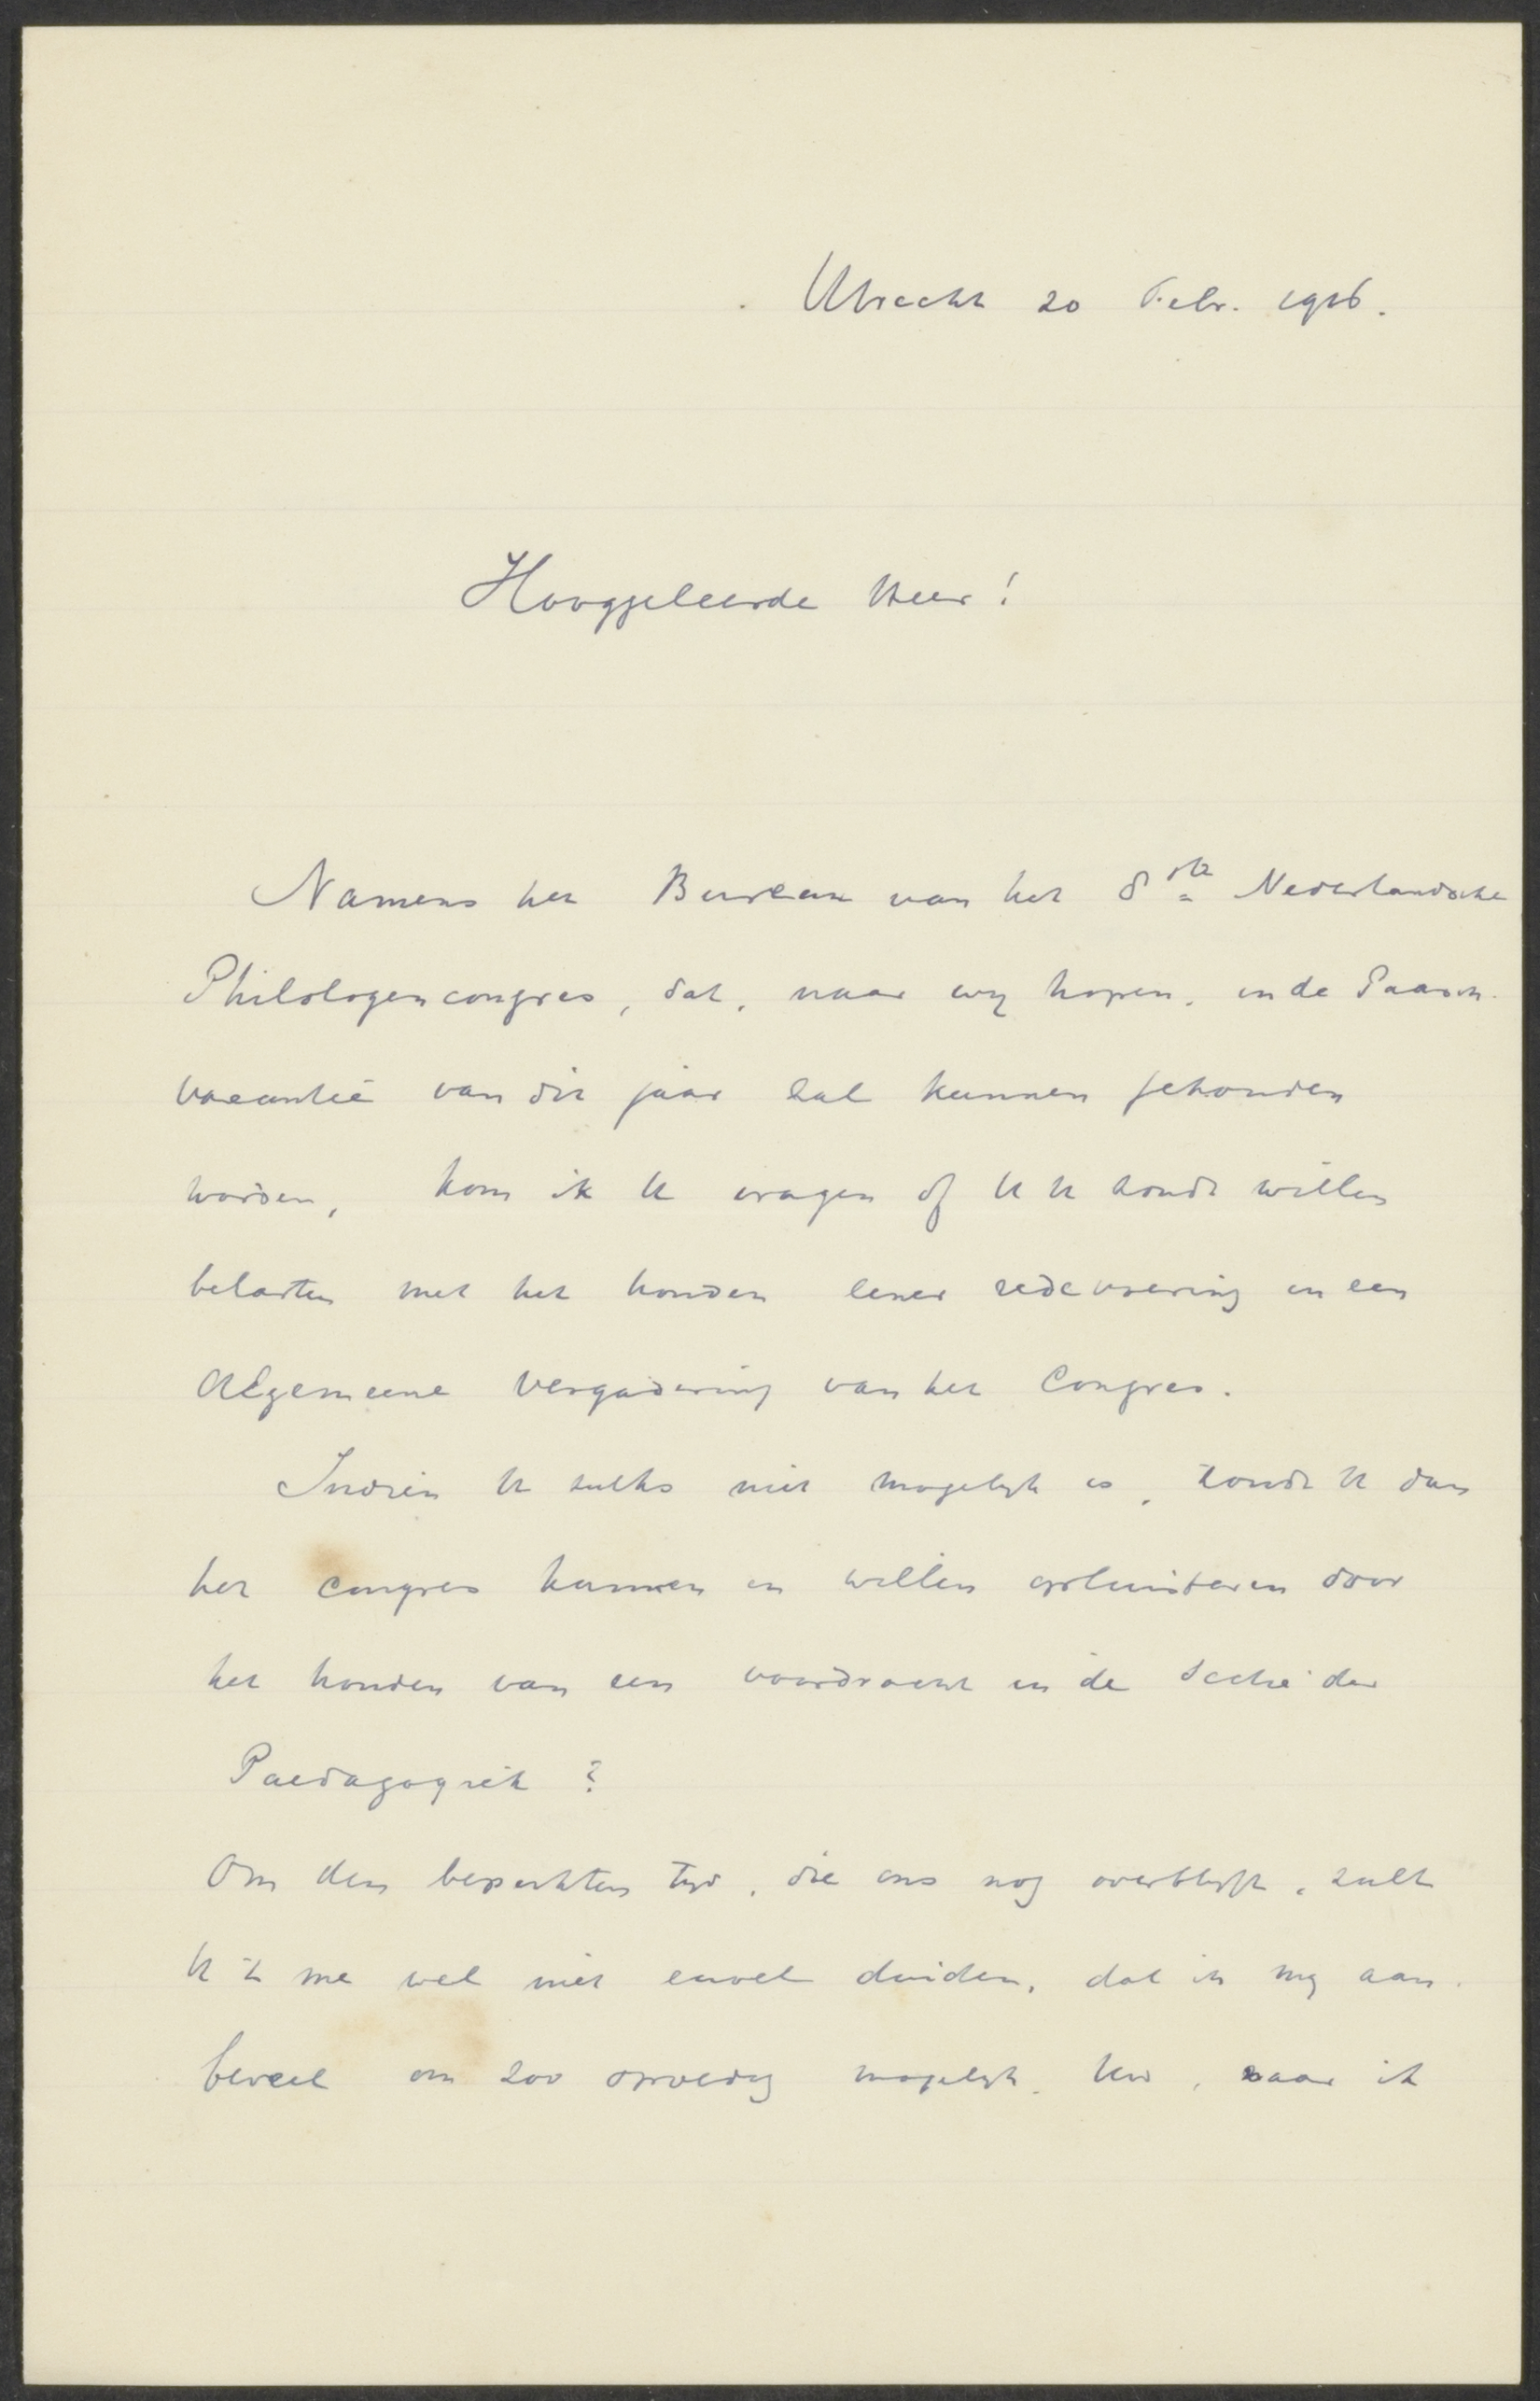 Utrecht 20 Febr. 1916.
Hooggeleerde Heer!
Namens het Bureau van het 8ste Nederlandsche
Philologencongres, dat, naar wij hopen, in de Paasch-
vacantie van dit jaar zal kunnen gehouden
worden, kom ik U vragen of U U zoudt willen
belasten met het houden eener redevoering in een
Algemeene Vergadering van het Congres.
Indien U zulks niet mogelijk is, zoudt U dan
het congres kunnen en willen opluisteren door
het houden van een voordracht in de Sectie der
Paedagogiek?
Om den beperkten tijd, die ons nog overblijft, zult
U 't me wel niet euvel duiden, dat ik mij aan-
beveel om zoo spoedig mogelijk Uw, naar ik